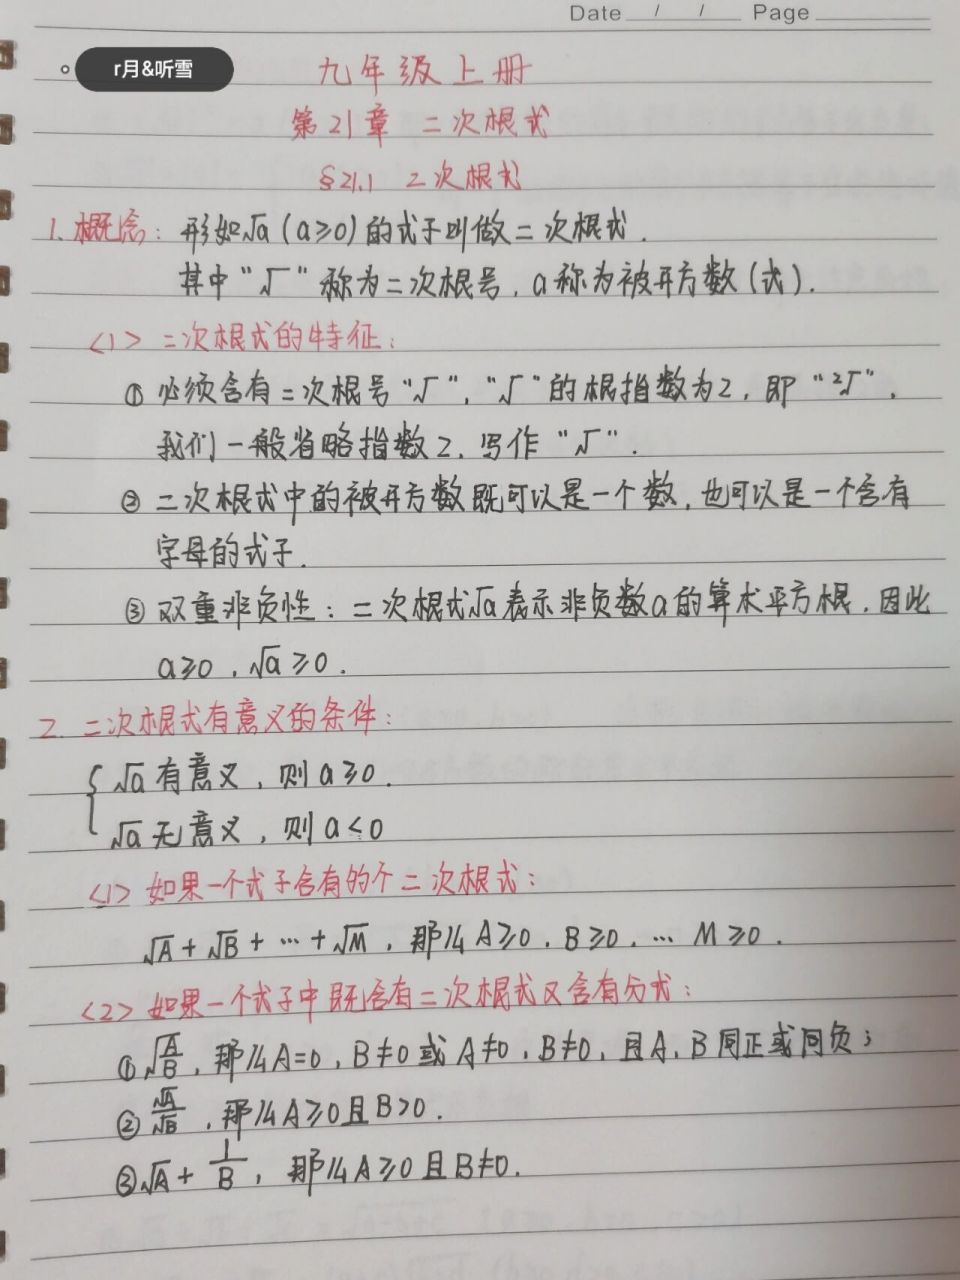 Date / / Page
r月&听雪
九年级上册
第21章 二次根式
§21.1 二次根式
1. 概念: 形如√a (a≥0) 的式子叫做二次根式.
其中“√”称为二次根号, a称为被开方数(式).
<1> 二次根式的特征:
① 必须含有二次根号“√”, “√”的根指数为2, 即“²√”,
我们一般省略指数2, 写作“√”.
② 二次根式中的被开方数既可以是一个数, 也可以是一个含有
字母的式子.
③ 双重非负性: 二次根式√a表示非负数a的算术平方根, 因此
a≥0, √a≥0.
2. 二次根式有意义的条件:
{ √a有意义, 则a≥0.
√a无意义, 则a<0
<1> 如果一个式子含有的个二次根式:
√A+√B+…+√M, 那么A≥0, B≥0, … M≥0.
<2> 如果一个式子中既含有二次根式又含有分式:
① √(A/B), 那么A=0, B≠0 或 A≠0, B≠0, 且A、B同正或同负;
② √A/√B, 那么A≥0且B>0.
③ √A+1/B, 那么A≥0且B≠0.